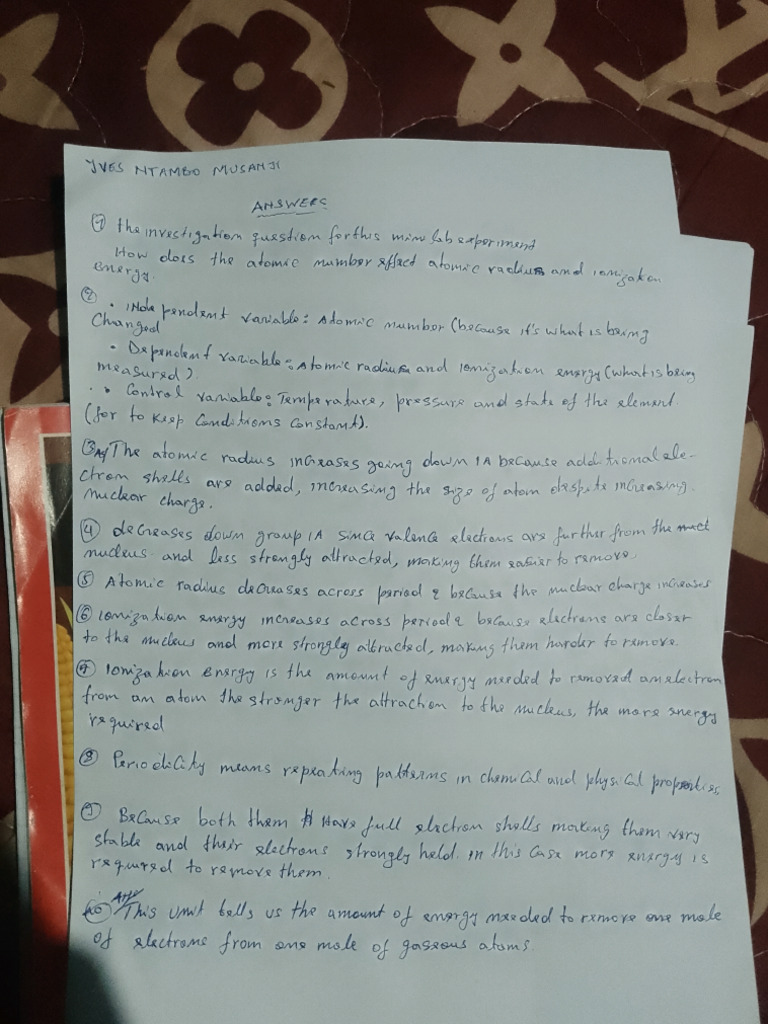 YVES NTAMBO MUSANJI
ANSWERS
① the investigation question for this mini lab experiment
How does the atomic number effect atomic radius and ionization
energy.
② • Independent variable: Atomic number (because it's what is being
Changed
• Dependent variable: Atomic radius and ionization energy (what is being
measured).
• Control variable: Temperature, pressure and state of the element.
(for to keep Conditions Constant).
③ The atomic radius increases going down 1A because additional ele-
ctron shells are added, increasing the size of atom despite increasing
nuclear charge.
④ decreases down group 1A since valence electrons are further from the
nucleus and less strongly attracted, making them easier to remove.
⑤ Atomic radius decreases across period 2 because the nuclear charge increases
⑥ Ionization energy increases across period 2 because electrons are closer
to the nucleus and more strongly attracted, making them harder to remove.
⑦ Ionization energy is the amount of energy needed to removed an electron
from an atom the stronger the attraction to the nucleus, the more energy
required
⑧ Periodicity means repeating patterns in chemical and physical properties
⑨ Because both them Have full electron shells making them very
stable and their electrons strongly held. in this case more energy is
required to remove them.
⑩ This unit tells us the amount of energy needed to remove one mole
of electrons from one mole of gaseous atoms.